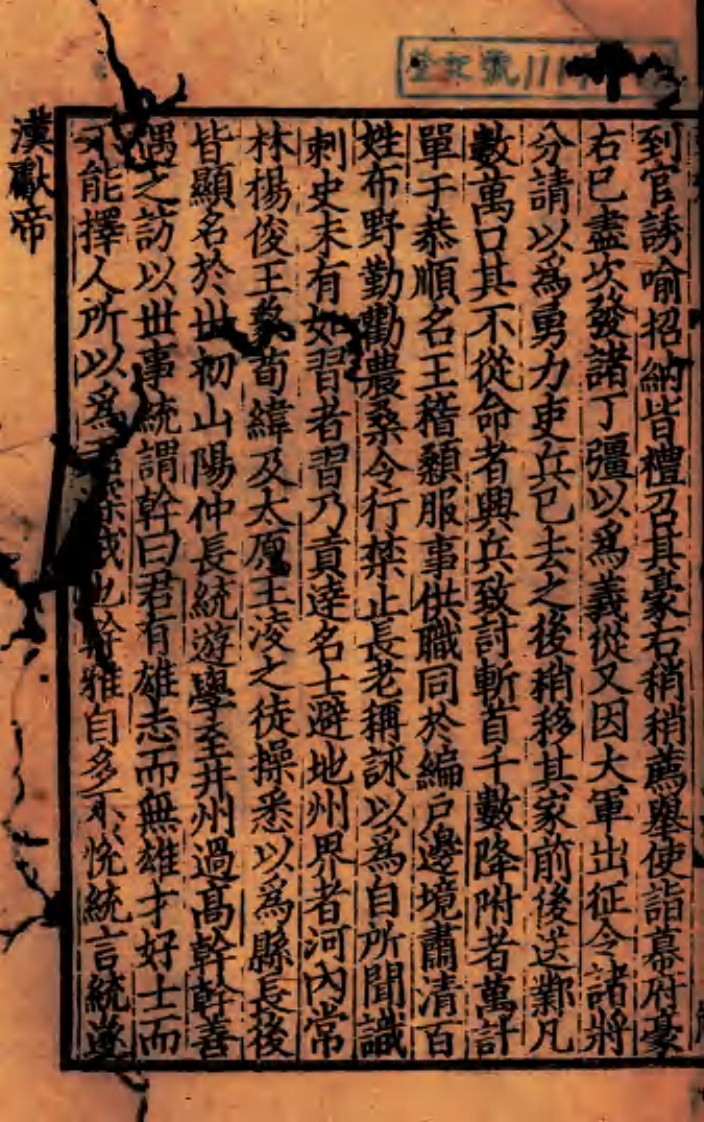 到官誘喻招納皆禮召其豪右稍稍薦舉使詣幕府豪
右已盡次發諸丁彊以爲義從又因大軍出征令諸將
分請以爲勇力吏兵已去之後稍移其家前後送鄴凡
數萬口其不從命者興兵致討斬首千數降附者萬計
單于恭順名王稽顙服事供職同於編戶邊境肅清百
姓布野勤勸農桑令行禁止長老稱詠以爲自所聞識
刺史未有如習者習乃貢達名士避地州界者河內常
林楊俊王象荀緯及太原王淩之徒操悉以爲縣長後
皆顯名於世初山陽仲長統遊學至并州過高幹幹善
遇之訪以世事統謂幹曰君有雄志而無雄才好士而
不能擇人所以爲君深戒也幹雅自多不悅統言統遂
漢獻帝
登記號